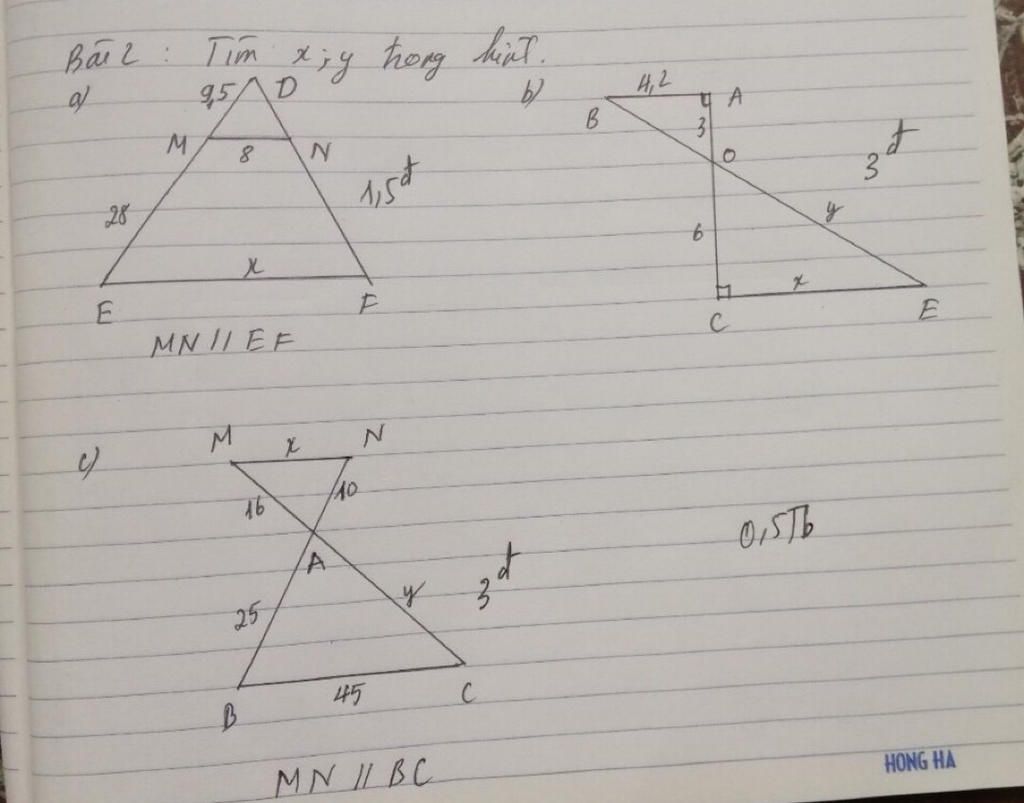 Bài 2 : Tìm x ; y trong hình.
a)
9,5 D
M 8 N
28
1,5đ
x
E F
MN // EF
b)
4,2
B A
3
O
3đ
y
6
x
C E
c)
M x N
16 10
A
25 y
3đ
B 45 C
MN // BC
0,5Tb
HONG HA